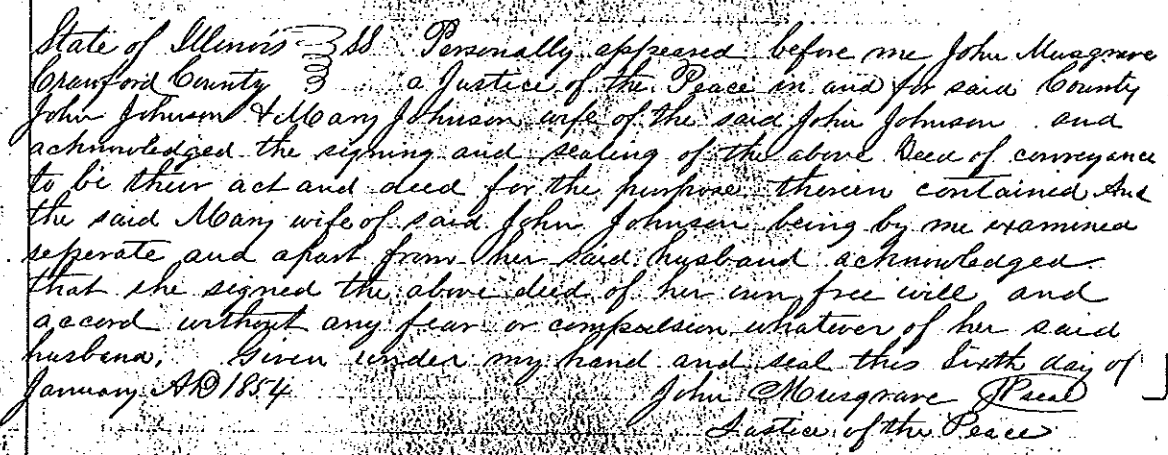 State of Illinois SS Personally appeared before me John Musgrave
Crawford County a Justice of the Peace in and for said County
John Johnson & Mary Johnson wife of the said John Johnson and
acknowledged the signing and sealing of the above Deed of conveyance
to be their act and deed for the purpose therein contained And
the said Mary wife of said John Johnson being by me examined
seperate and apart from her said husband acknowledged
that she signed the above deed of her own free will and
accord without any fear or compulsion whatever of her said
husband. Given under my hand and seal this Sixth day of
January AD 1854 John Musgrave JP seal
Justice of the Peace